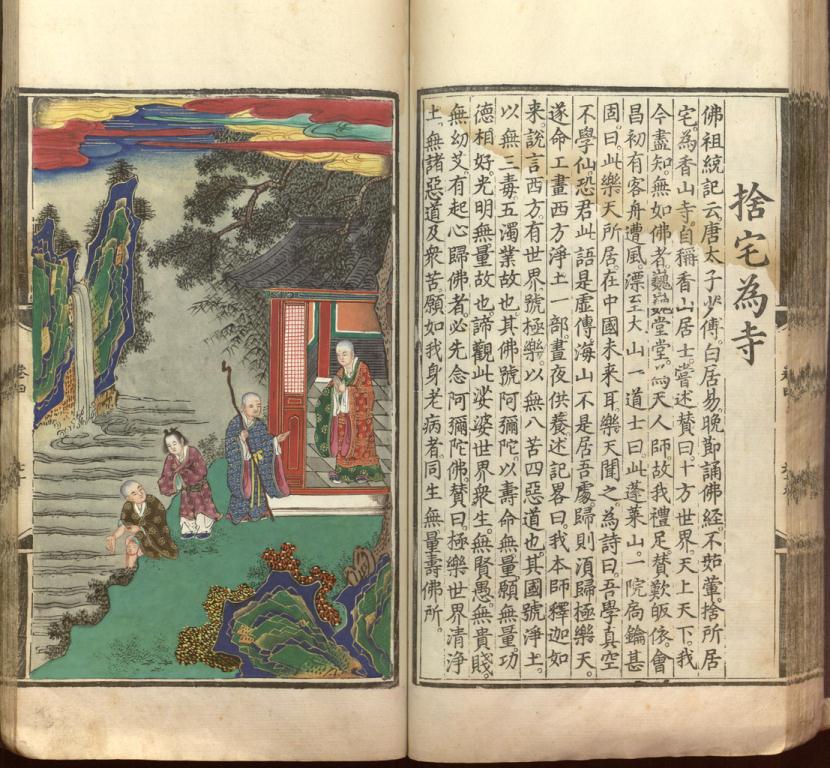 捨宅為寺
佛祖統記云唐太子少傅。白居易。晚節誦佛經。不茹葷。捨所居
宅。為香山寺。自稱香山居士。嘗述贊曰。十方世界。天上天下。我
今盡知。無如佛者。巍巍堂堂。為天人師。故我禮足。贊歎皈依。會
昌初有客舟遭風。漂至大山。一道士曰。此蓬萊山。一院扃鑰甚
固。曰。此樂天所居。在中國未來耳。樂天聞之。為詩曰。吾學真空
不學仙。恐君此語是虛傳。海山不是居吾處。歸則須歸極樂天。
遂命工畫西方淨土一部。晝夜供養。述記畧曰。我本師釋迦如
來。說言西方有世界。號極樂。以無八苦四惡道也。其國號淨土。
以無三毒五濁業故也。其佛號阿彌陀。以壽命無量。願無量。功
德相好。光明無量故也。諦觀此娑婆世界眾生。無賢愚。無貴賤。
無幼艾。有起心歸佛者。必先念阿彌陀佛。贊曰。極樂世界清淨
土。無諸惡道及眾苦。願如我身老病者。同生無量壽佛所。
卷四